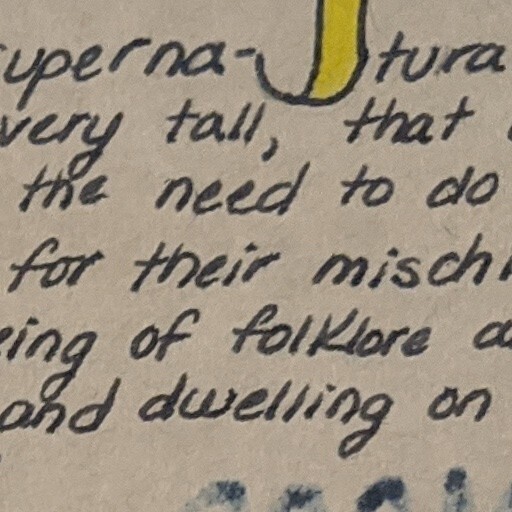 superna-tura
very tall, that
the need to do
for their mischi
eing of folklore a
and dwelling on